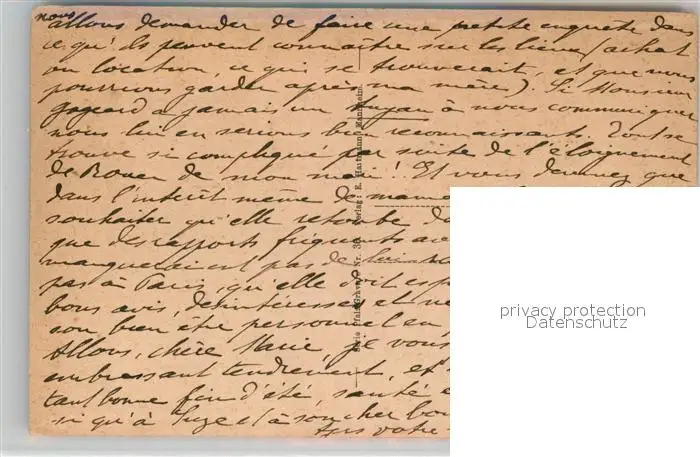 nous
allons demander de faire une petite enquête dans
ce qu'ils peuvent connaître sur les lieux (achat
ou location, ce qui se trouverait, et que nous
pourrions garder après ma mère). Si Monsieur
a jamais un tuyau à nous communiquer
nous lui en serions bien reconnaissants. Tout se
trouve si compliqué par suite de l'éloignement
de Rouen de mon mari! Et vous devinez que
dans l'intérêt même de mam
souhaiter qu'elle retombe
que des rapports fréquents
manqueraient pas de
pas à Paris, qu'elle doit
bons avis, désintéressés et
son bien être personnel en
Allons, chère Marie, je vous
embrassant tendrement, et
tant bonne fin d'été, santé
si qu'à à son cher
votre
Serie Pfalz Gravure Nr. Verlag: E. Hartmann, Mannheim.
privacy protection
Datenschutz